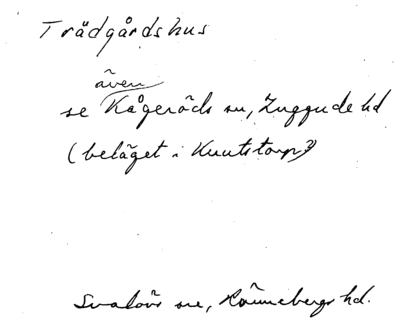 Trädgårdshus
även
se Kågeröds sn, Luggude hd
(beläget i Knutstorp?)
Svalövs sn, Rönnebergs hd.